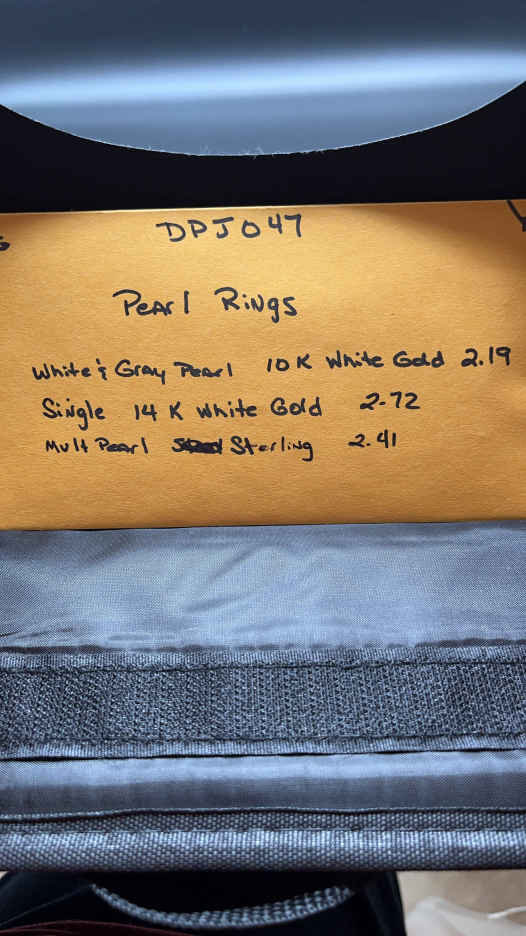 DPJ047
Pearl Rings
White & Gray Pearl 10K White Gold 2.19
Single 14K White Gold 2.72
Mult Pearl Sterling 2.41